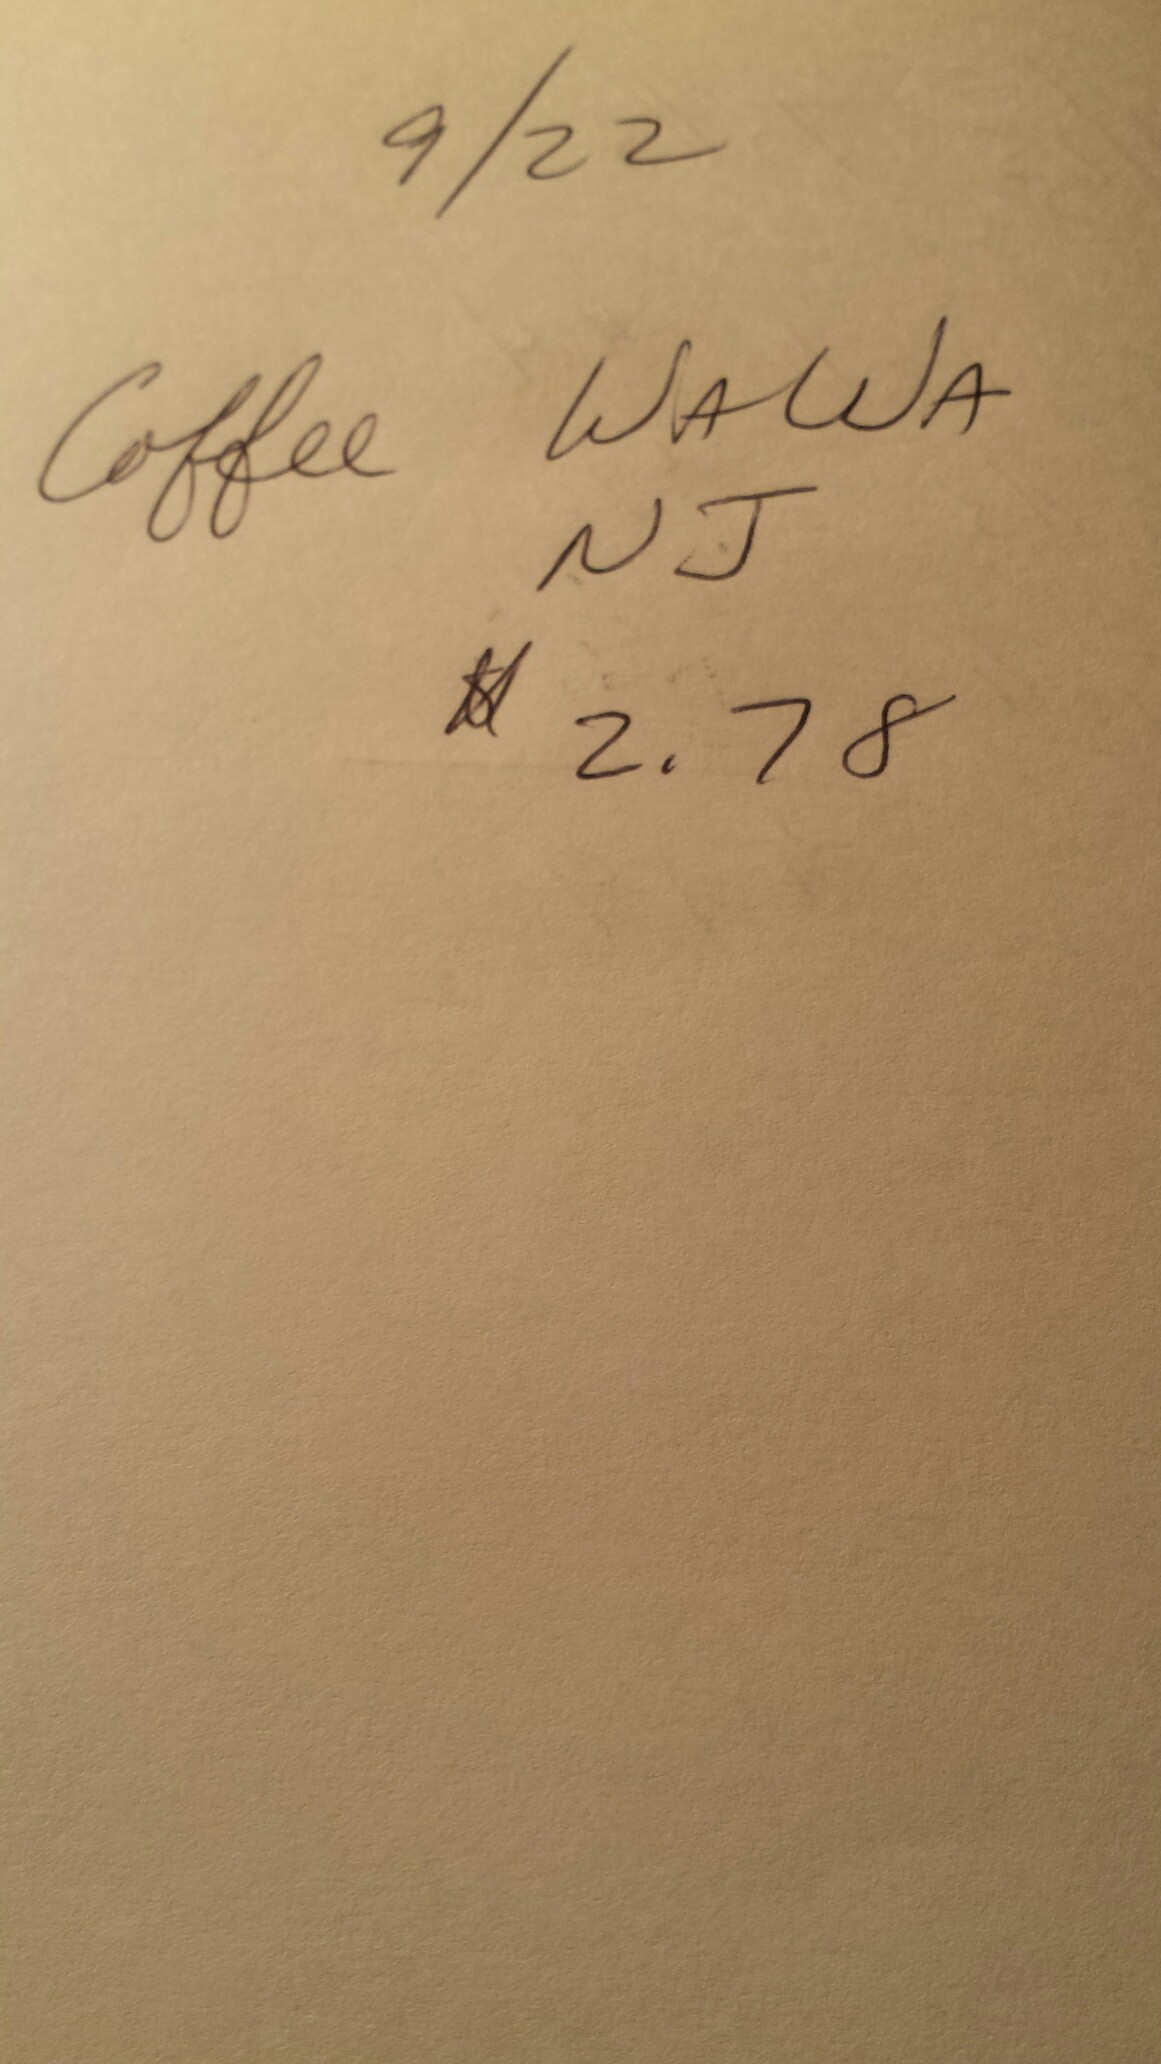 9/22
Coffee WAWA
NJ
$ 2.78